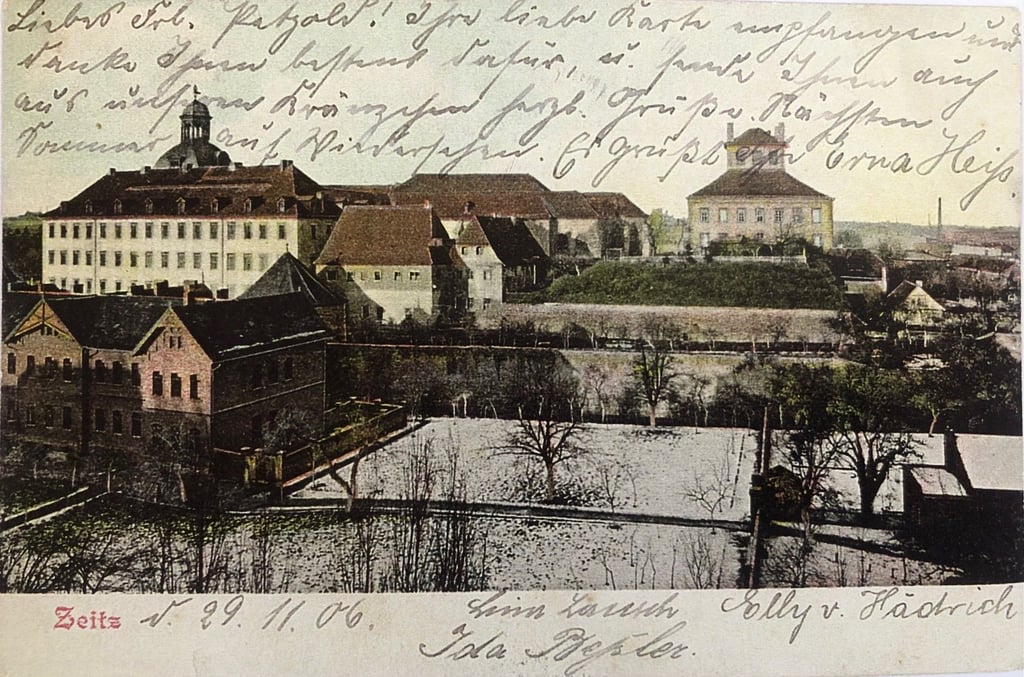 Liebes Frl. Petzold! Ihre liebe Karte empfangen und
danke Ihnen bestens dafür, u. sende Ihnen auch
aus unserem Kränzchen herzl. Grüße. Nächsten
Sommer auf Wiedersehen. Es grüßt Erna Heiß
Zeitz d. 29. 11. 06. Lina Elly v. Hädrich
Ida